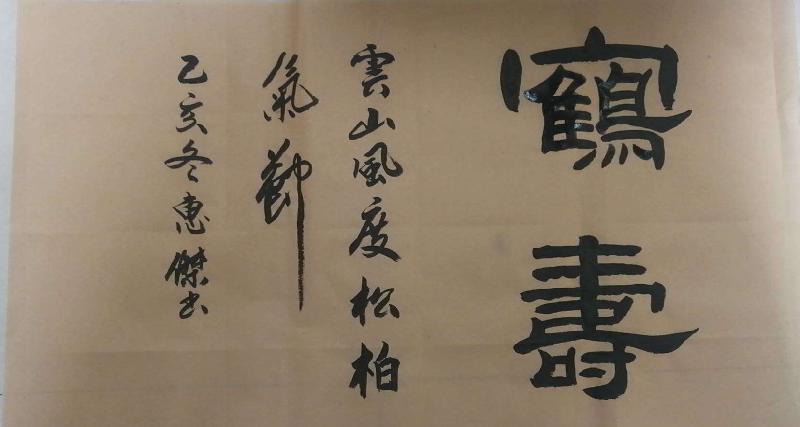 鶴壽
雲山風度松柏
氣節
乙亥冬惠傑书